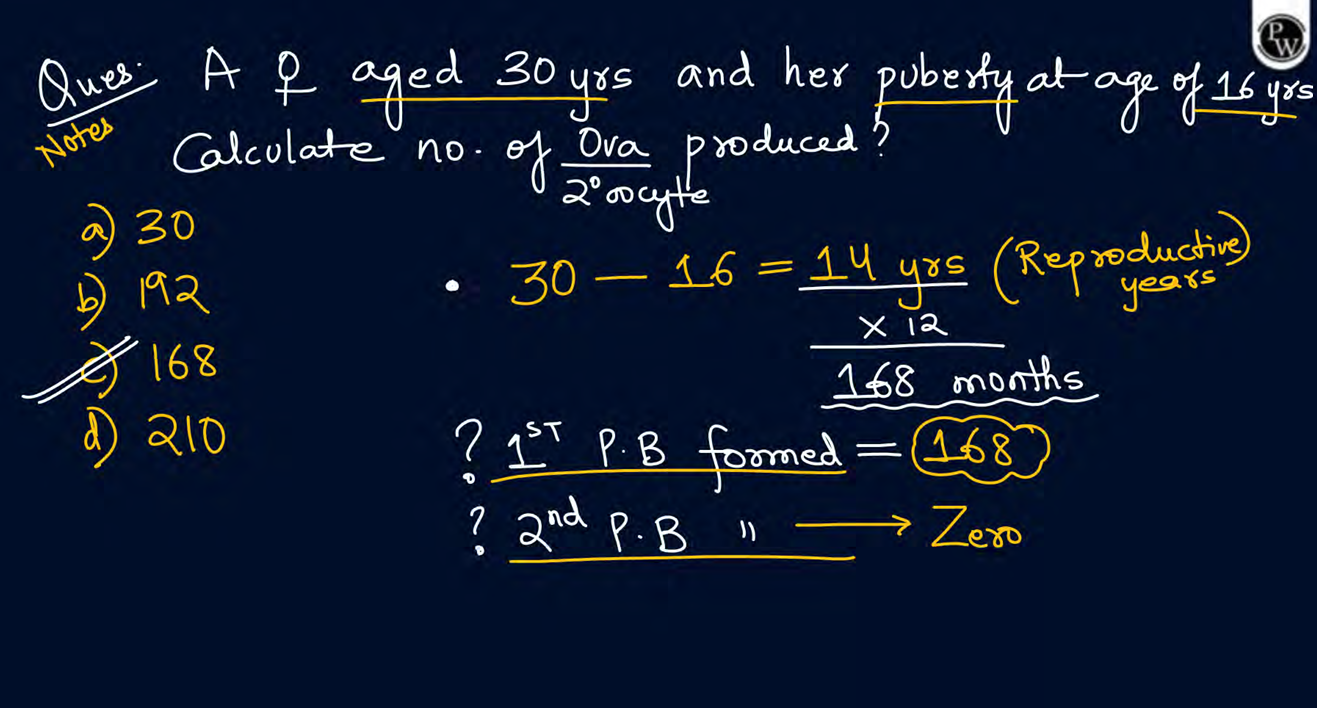 PW
Ques. A ♀ aged 30 yrs and her puberty at age of 16 yrs
Notes
Calculate no. of Ova produced?
2° oocyte
a) 30
b) 192
c) 168
d) 210
• 30 — 16 = 14 yrs (Reproductive years)
x 12
168 months
? 1ST P.B formed = 168
? 2nd P.B " → Zero